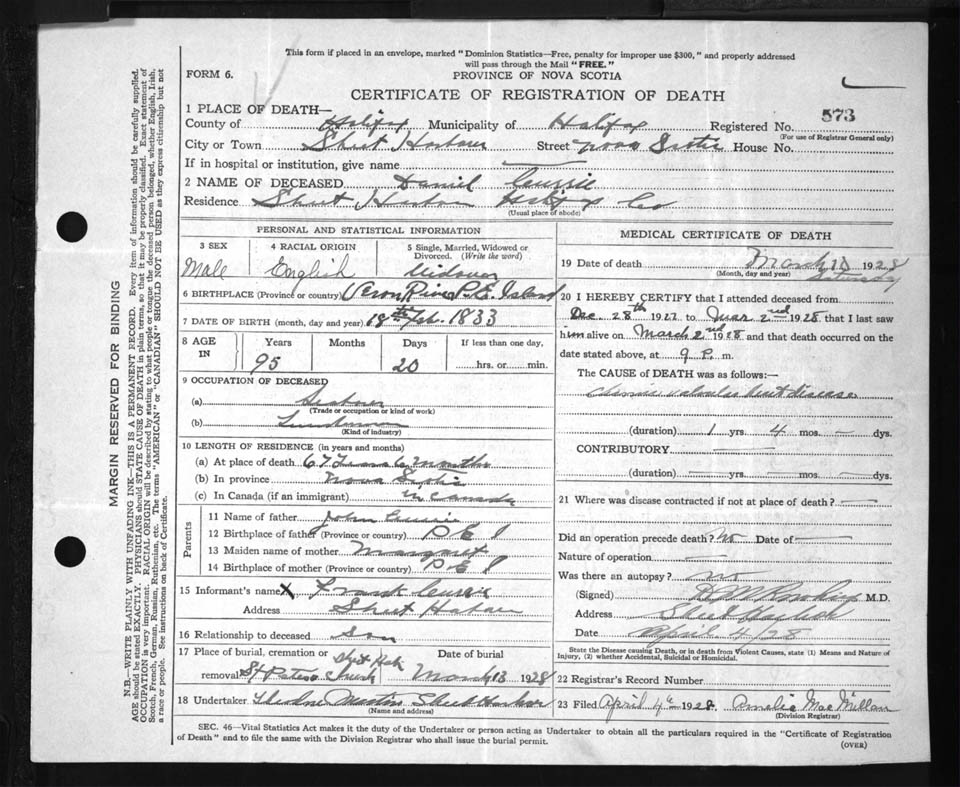 This form if placed in an envelope, marked "Dominion Statistics—Free, penalty for improper use $300," and properly addressed
will pass through the Mail "FREE."
FORM 6.
PROVINCE OF NOVA SCOTIA
CERTIFICATE OF REGISTRATION OF DEATH
1 PLACE OF DEATH—
County of Halifax Municipality of Halifax Registered No. 573
(For use of Registrar General only)
City or Town Sheet Harbour Street Nova Scotia House No.
If in hospital or institution, give name
2 NAME OF DECEASED Daniel Currie
Residence Sheet Harbour Halifax Co
(Usual place of abode)
PERSONAL AND STATISTICAL INFORMATION
3 SEX
Male
4 RACIAL ORIGIN
English
5 Single, Married, Widowed or
Divorced. (Write the word)
Widower
6 BIRTHPLACE (Province or country) River P. E. Island
7 DATE OF BIRTH (month, day and year) 18th Feb. 1833
8 AGE
IN
Years
95
Months
Days
20
If less than one day,
hrs. or min.
9 OCCUPATION OF DECEASED
(a)
(Trade or occupation or kind of work)
(b)
(Kind of industry)
10 LENGTH OF RESIDENCE (in years and months)
(a) At place of death 67 Years 6 Months
(b) In province Nova Scotia
(c) In Canada (if an immigrant) in Canada
Parents
11 Name of father John Currie
12 Birthplace of father (Province or country) P E I
13 Maiden name of mother Margaret
14 Birthplace of mother (Province or country) P E I
15 Informant's name X Frank Currie
Address Sheet Harbour
16 Relationship to deceased Son
17 Place of burial, cremation or
removal St Peters Church
Date of burial
March 13 1928
18 Undertaker Martin Sheet Harbour
(Name and address)
MEDICAL CERTIFICATE OF DEATH
19 Date of death March 10 1928
(Month, day and year)
20 I HEREBY CERTIFY that I attended deceased from
Dec. 28th 1927 to Mar 2nd 1928 that I last saw
him alive on March 2nd 1928 and that death occurred on the
date stated above, at 9 P. m.
The CAUSE of DEATH was as follows:—
chronic valvular heart disease
(duration) 1 yrs. 4 mos. — dys.
CONTRIBUTORY —
(duration) — yrs. — mos. — dys.
21 Where was disease contracted if not at place of death? —
Did an operation precede death? No Date of —
Nature of operation —
Was there an autopsy? no
(Signed) M.D.
Address Sheet Harbour
Date April 4/28
State the Disease causing Death, or in death from Violent Causes, state (1) Means and Nature of
Injury, (2) whether Accidental, Suicidal or Homicidal.
22 Registrar's Record Number
23 Filed April 4th 1928 Amelia MacMillan
(Division Registrar)
SEC. 46—Vital Statistics Act makes it the duty of the Undertaker or person acting as Undertaker to obtain all the particulars required in the "Certificate of Registration
of Death" and to file the same with the Division Registrar who shall issue the burial permit.
(OVER)
MARGIN RESERVED FOR BINDING
N.B.—WRITE PLAINLY WITH UNFADING INK—THIS IS A PERMANENT RECORD. Every item of information should be carefully supplied.
AGE should be stated EXACTLY. PHYSICIANS should STATE CAUSE OF DEATH in plain terms, so that it may be properly classified. Exact statement of
OCCUPATION is very important. RACIAL ORIGIN will be described by stating to what people or tongue the deceased person belonged, whether English, Irish,
Scotch, French, German, Russian, Ruthenian, etc. The terms "AMERICAN" or "CANADIAN" SHOULD NOT BE USED as they express citizenship but not
a race or people. See instructions on back of Certificate.